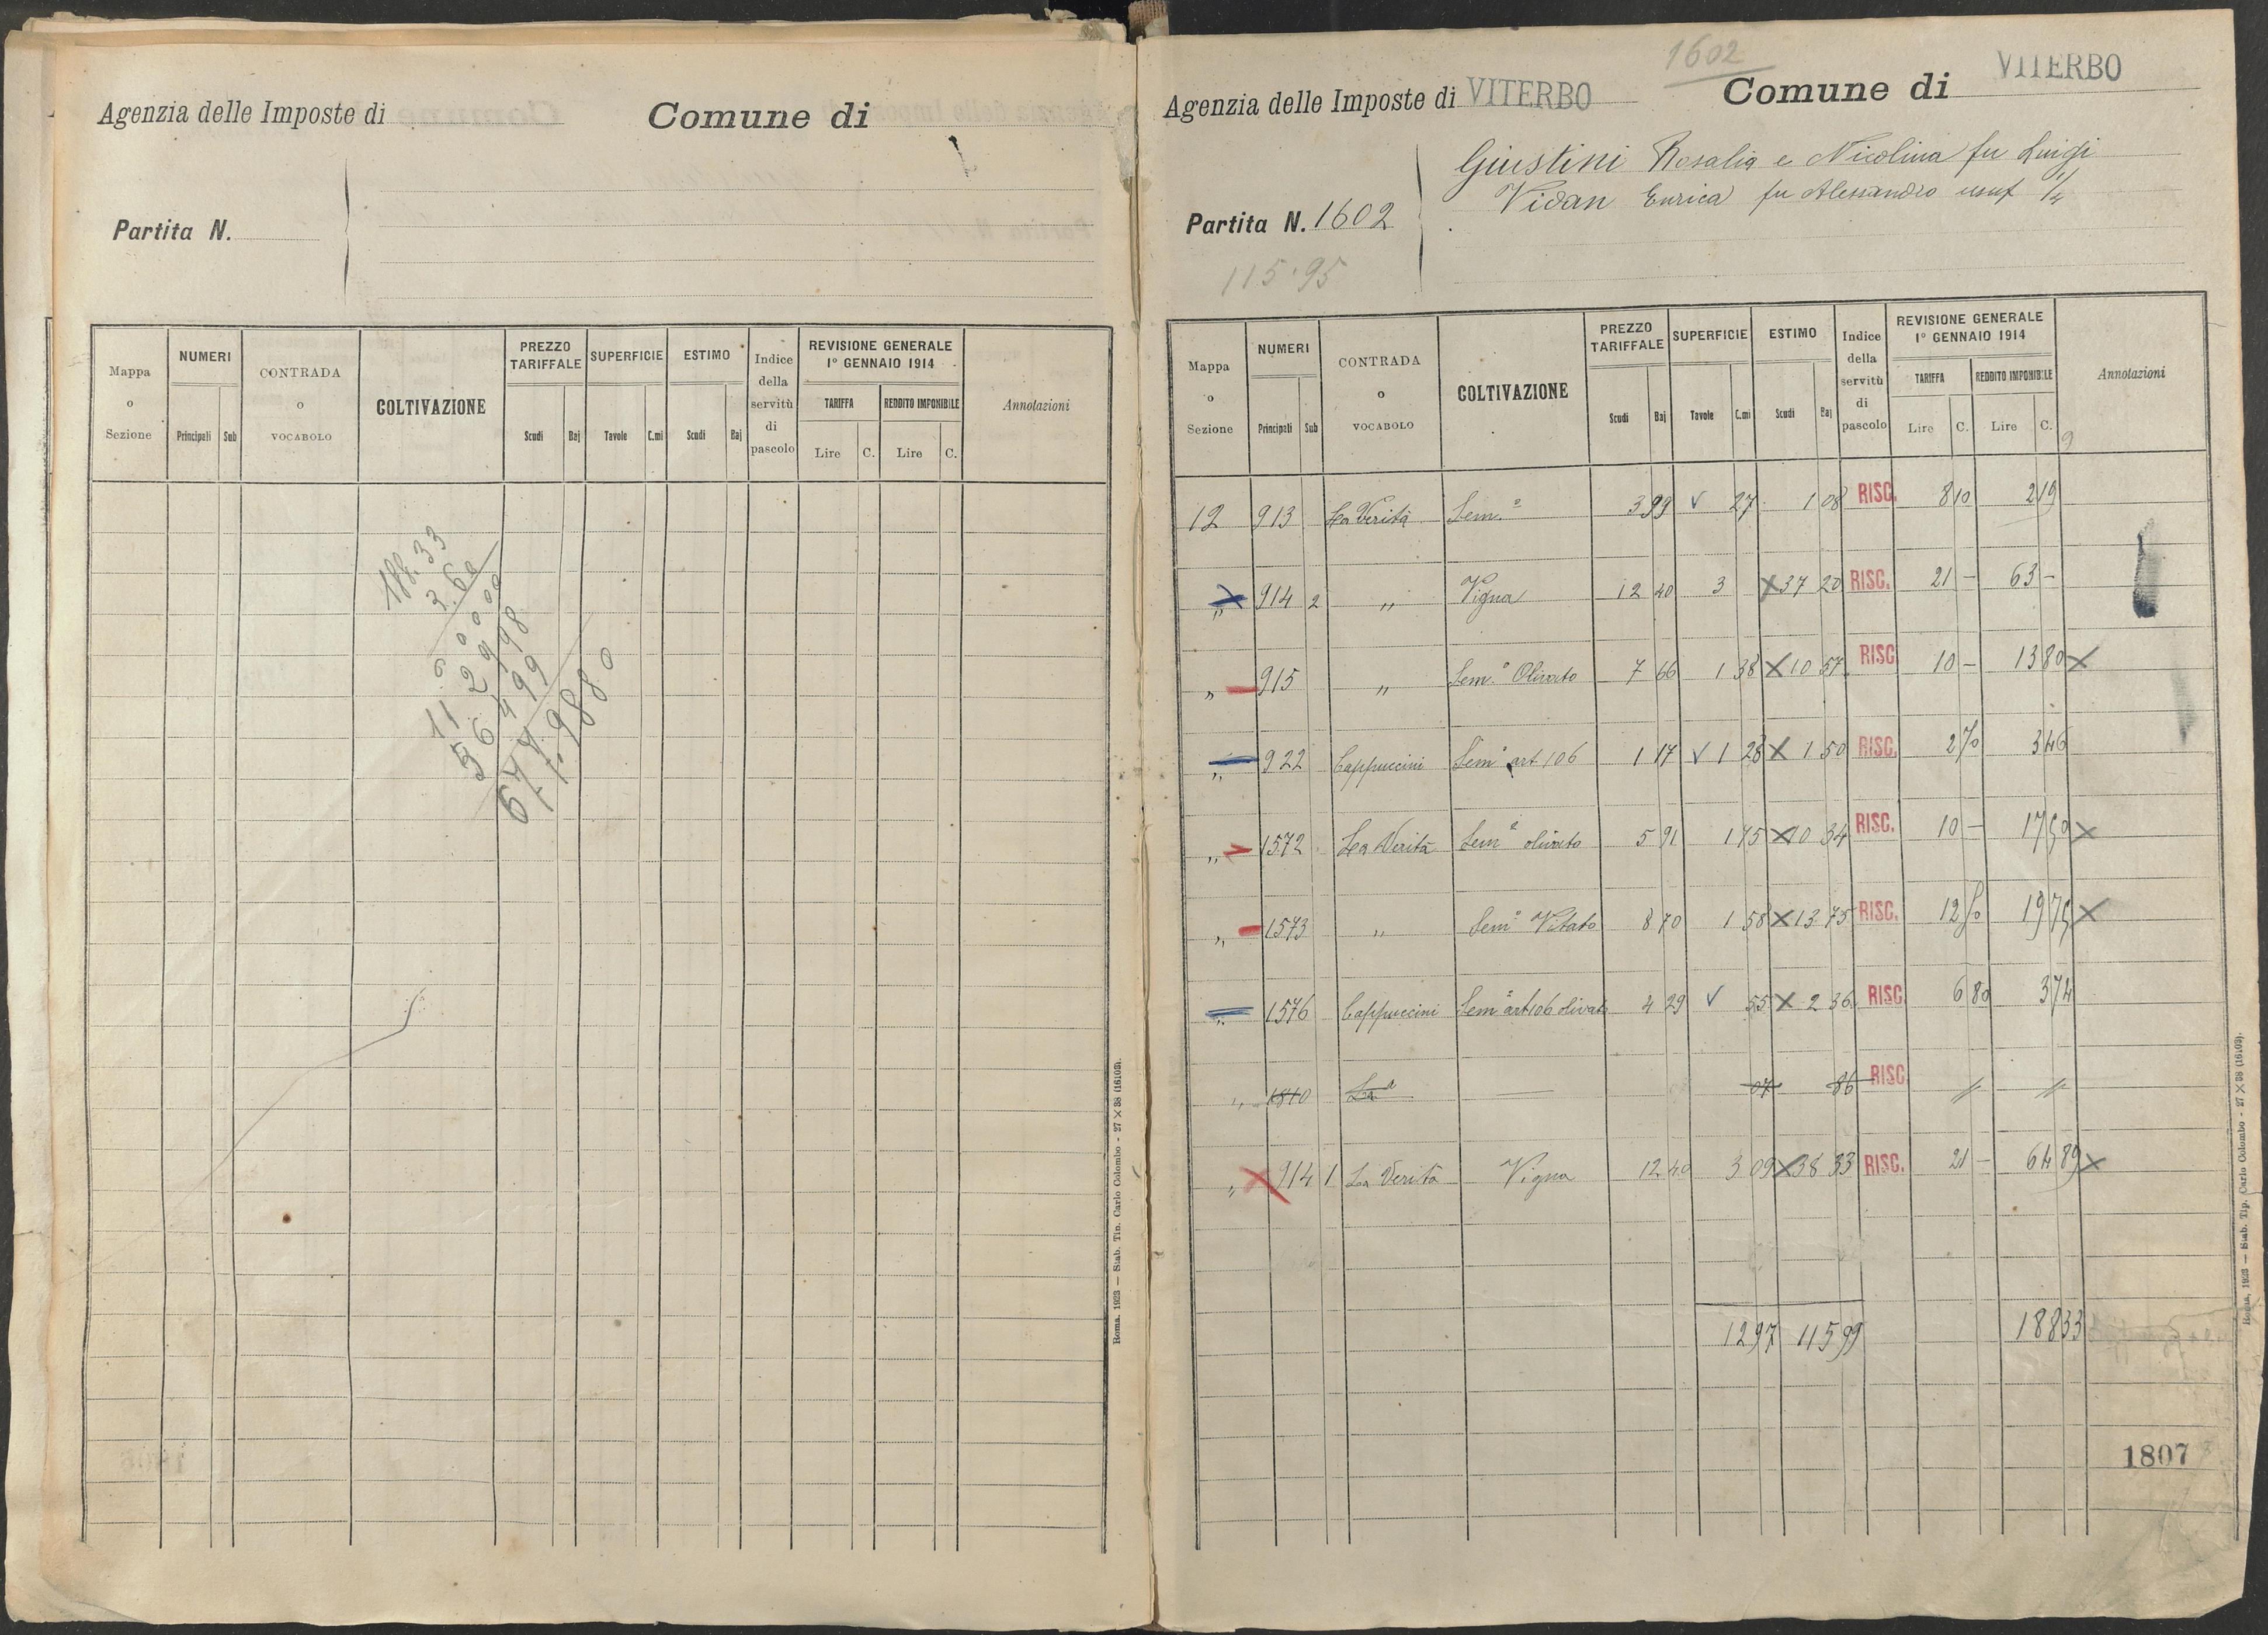 Agenzia delle Imposte di
Comune di
Partita N.
Mappa o Sezione
NUMERI
Principali Sub
CONTRADA o VOCABOLO
COLTIVAZIONE
PREZZO TARIFFALE
Scudi Baj
SUPERFICIE
Tavole C.mi
ESTIMO
Scudi Baj
Indice della servitù di pascolo
REVISIONE GENERALE
1° GENNAIO 1914
TARIFFA
Lire C.
REDDITO IMPONIBILE
Lire C.
Annotazioni
188.33
3.60
Roma. 1923 — Stab. Tip. Carlo Colombo - 27 X 38 (16103).
1602
Agenzia delle Imposte di VITERBO
Comune di VITERBO
Giustini Rosalia e Nicolina fu Luigi
Vidan Enrica fu Alessandro usuf 1/4
Partita N. 1602
115.95
Mappa o Sezione
NUMERI
Principali Sub
CONTRADA o VOCABOLO
COLTIVAZIONE
PREZZO TARIFFALE
Scudi Baj
SUPERFICIE
Tavole C.mi
ESTIMO
Scudi Baj
Indice della servitù di pascolo
REVISIONE GENERALE
1° GENNAIO 1914
TARIFFA
Lire C.
REDDITO IMPONIBILE
Lire C.
Annotazioni
12 913 La Verità Sem.o 3 99 27 1 08 RISC. 8 10 2 19
" 914 2 " Vigna 12 40 3 37 20 RISC. 21 – 63 –
" 915 " Sem.o Olivato 7 66 1 38 10 57 RISC 10 – 13 80
" 922 Cappuccini Sem.o art 106 1 17 1 28 1 50 RISC. 2 70 3 46
" 1572 La Verità Sem.o olivato 5 91 1 75 10 34 RISC. 10 – 17 50
" 1573 " Sem.o Vitato 8 70 1 58 13 75 RISC. 12 50 19 75
" 1576 Cappuccini Sem.o art 106 olivato 4 29 55 2 36 RISC 6 80 3 74
" 1810 07 86 RISC
" 914 1 La Verità Vigna 12 40 3 09 38 33 RISC. 21 – 64 89
12 97 115 99 188 33
1807
Roma, 1923 — Stab. Tip. Carlo Colombo - 27 X 38 (16103).